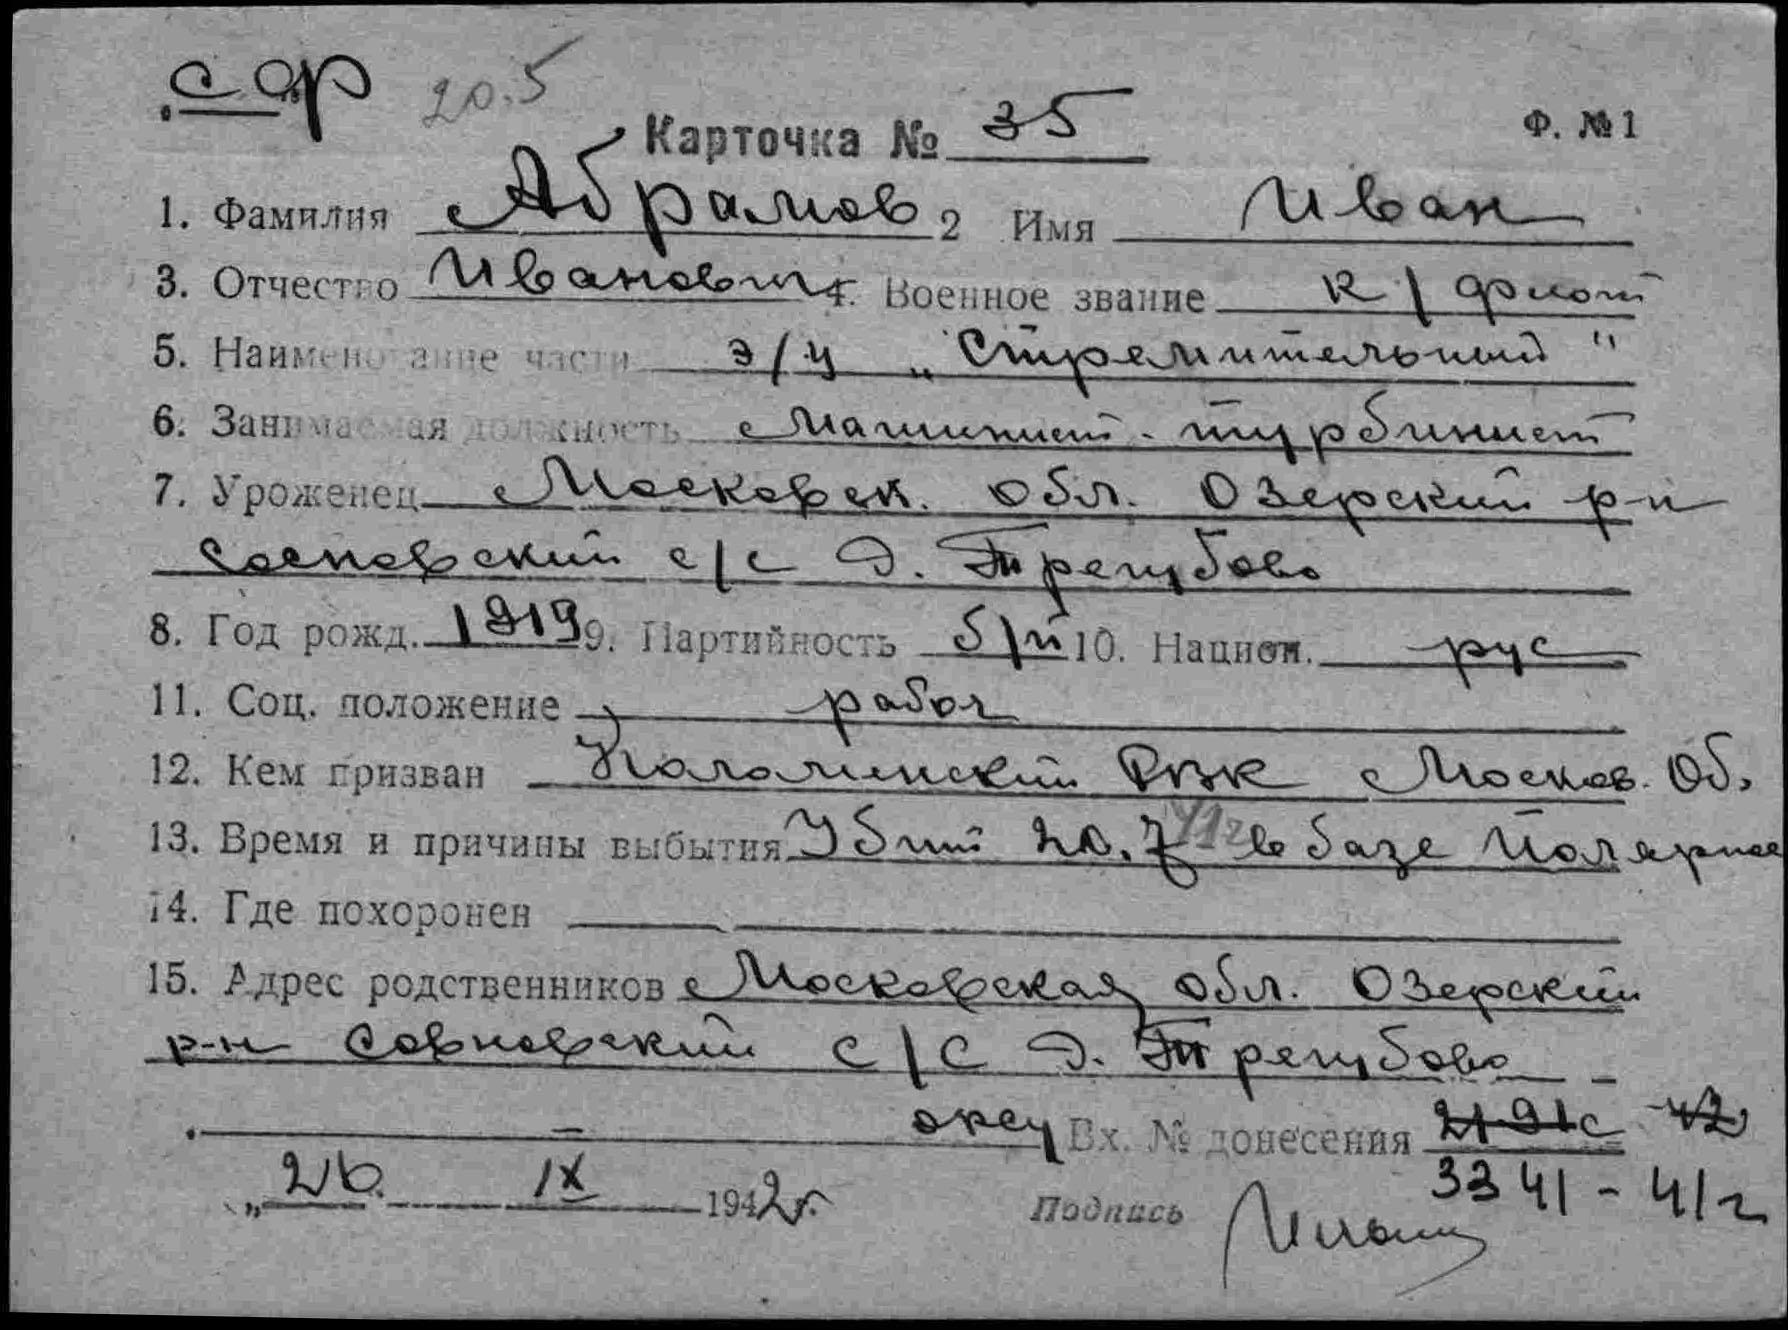 СФ 20.5
Карточка № 35 Ф. №1
1. Фамилия Абрамов 2 Имя Иван
3. Отчество Иванович 4. Военное звание к/флот
5. Наименование части э/м „Стремительный"
6. Занимаемая должность Машинист-турбинист
7. Уроженец Московск. обл. Озерский р-н
Сосновский с/с д. Трегубово
8. Год рожд. 1919 9. Партийность б/п 10. Национ. рус
11. Соц. положение рабоч
12. Кем призван Коломенский РВК Москов. Об.
13. Время и причины выбытия Убит 20.7 41г в базе Полярное
14. Где похоронен
15. Адрес родственников Московская обл. Озерский
р-н Совновский с/с д. Трегубово
Вх. № донесения 2191с 42
„26. IX 1942г. Подпись 3341-41г